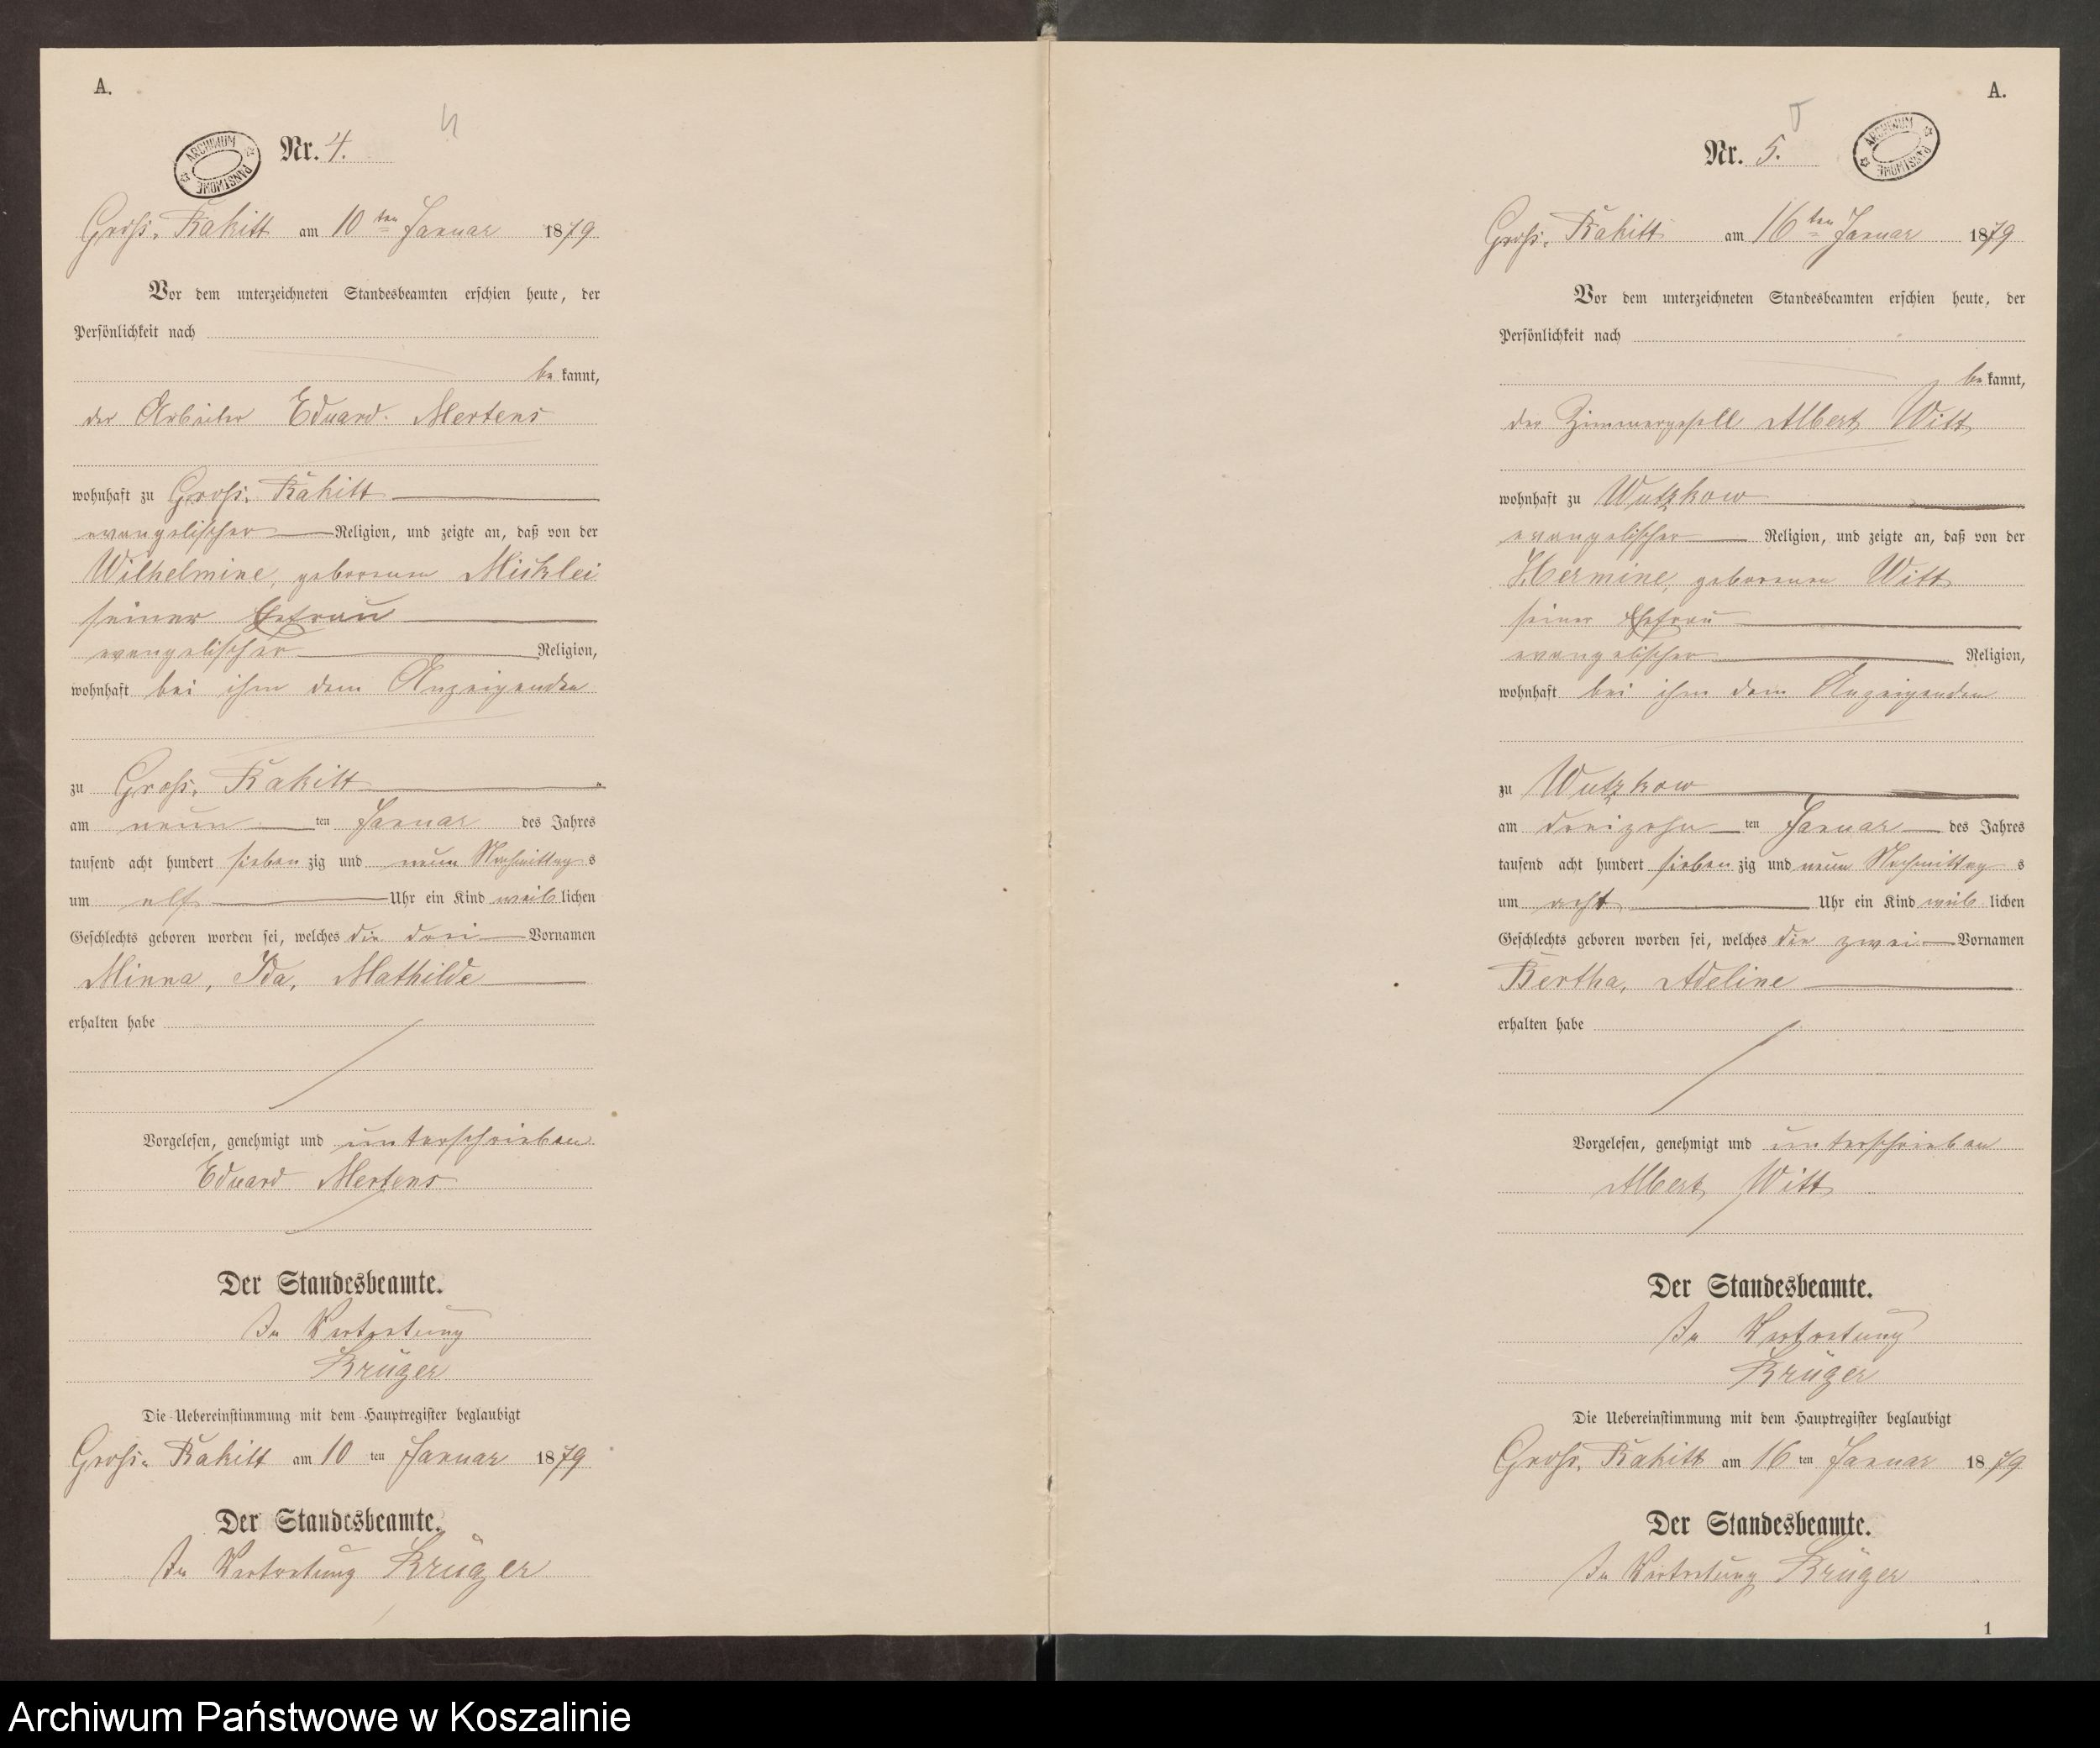 A.
ARCHIWUM PAŃSTWOWE
Nr. 4.
4
Groß. Rakitt am 10 ten Januar 1879
Vor dem unterzeichneten Standesbeamten erschien heute, der
Persönlichkeit nach
be kannt,
der Arbeiter Eduard Mertens
wohnhaft zu Groß. Rakitt
evangelischer Religion, und zeigte an, daß von der
Wilhelmine, geborenen Micklei
seiner Ehefrau
evangelischer Religion,
wohnhaft bei ihm dem Anzeigenden
zu Groß. Rakitt
am neun ten Januar des Jahres
tausend acht hundert sieben zig und neun Nachmittag s
um elf Uhr ein Kind weib lichen
Geschlechts geboren worden sei, welches die drei Vornamen
Minna, Ida, Mathilde
erhalten habe
Vorgelesen, genehmigt und unterschrieben
Eduard Mertens
Der Standesbeamte.
In Vertretung
Krüger
Die Uebereinstimmung mit dem Hauptregister beglaubigt
Groß. Rakitt am 10 ten Januar 1879
Der Standesbeamte.
In Vertretung Krüger
A.
5
Nr. 5.
ARCHIWUM PAŃSTWOWE
Groß. Rakitt am 16 ten Januar 1879
Vor dem unterzeichneten Standesbeamten erschien heute, der
Persönlichkeit nach
be kannt,
der Zimmergesell Albert Witt
wohnhaft zu Wutzkow
evangelischer Religion, und zeigte an, daß von der
Hermine, geborenen Witt
seiner Ehefrau
evangelischer Religion,
wohnhaft bei ihm dem Anzeigenden
zu Wutzkow
am dreizehn ten Januar des Jahres
tausend acht hundert sieben zig und neun Nachmittag s
um acht Uhr ein Kind weib lichen
Geschlechts geboren worden sei, welches die zwei Vornamen
Bertha, Adeline
erhalten habe
Vorgelesen, genehmigt und unterschrieben
Albert Witt
Der Standesbeamte.
In Vertretung
Krüger
Die Uebereinstimmung mit dem Hauptregister beglaubigt
Groß. Rakitt am 16 ten Januar 1879
Der Standesbeamte.
In Vertretung Krüger
1
Archiwum Państwowe w Koszalinie